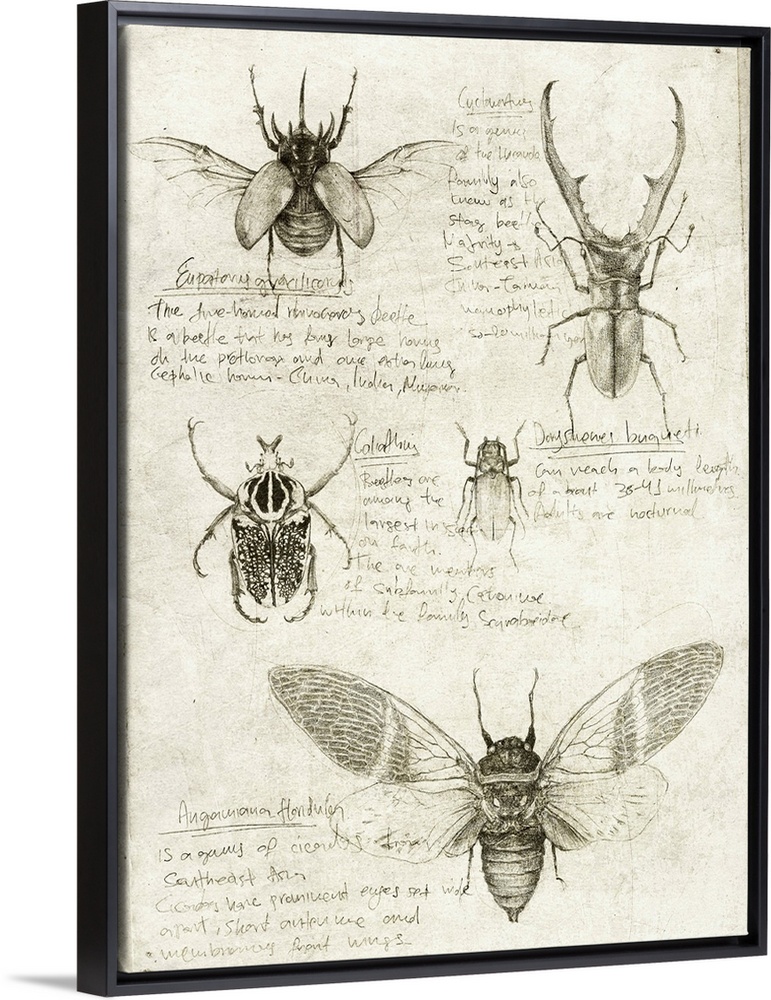 Eupatorus gracilicornis
The five-horned rhinoceros beetle
is a beetle that has four large horns
on the prothorax and one extra long
Cephalic horn - China, India, Myanmar.
Cyclommatus
is a genus
of the
family also
known as the
stag beetl
Majority
Southeast Asia
Goliathus
Beetles are
among the
largest insects
on Earth.
The are members
of subfamily, Cetoniinae
within the family Scarabaeidae
Dorysthenes buqueti.
Can reach a body length
of about 38-41 millimetres
Adults are nocturnal.
Angamiana floridula
is a genus of cicadas from
Southeast Asia
Cicadas have prominent eyes set wide
apart, short antennae and
membranous front wings